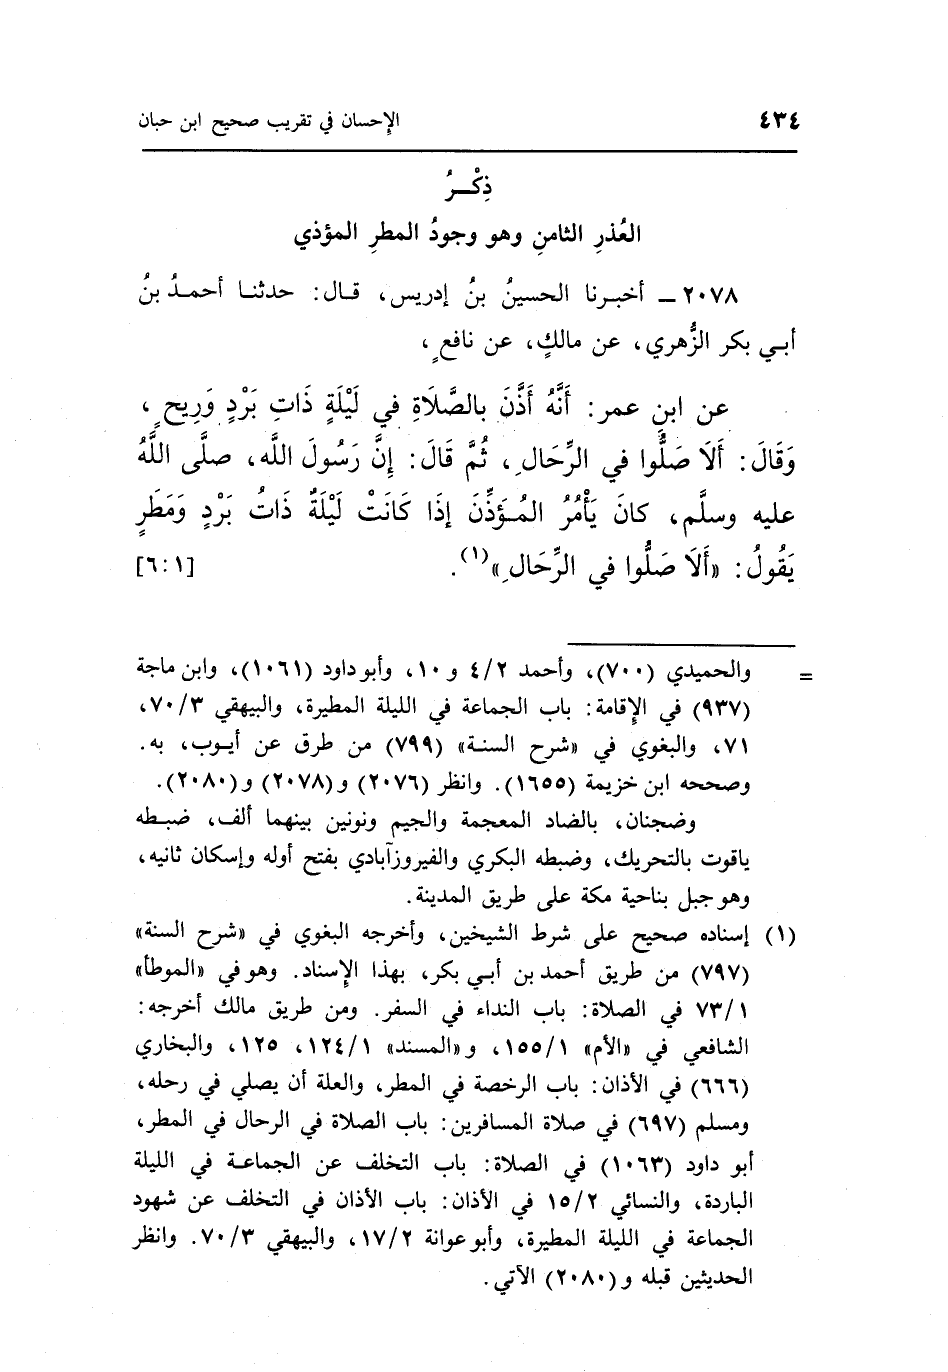 ٤٣٤ الإحسان في تقريب صحيح ابن حبان
ذِكْـرُ
العُذرِ الثامنِ وهو وجودُ المطرِ المؤذي
٢٠٧٨ ـ أخبرنا الحسينُ بنُ إدريس، قـال: حدثنـا أحمـدُ بنُ
أبـي بكر الزُّهري، عن مالكٍ، عن نافعٍ،
عن ابنِ عمر: أَنَّهُ أَذَّنَ بالصَّلَاةِ في لَيْلَةٍ ذَاتِ بَرْدٍ وَرِيحٍ،
وَقَالَ: أَلَا صَلُّوا في الرِّحَالِ، ثُمَّ قَالَ: إنَّ رَسُولَ اللَّه، صلَّى اللَّهُ
عليه وسلَّم، كانَ يَأْمُرُ المُـؤَذِّنَ إذَا كَانَتْ لَيْلَةٌ ذَاتُ بَرْدٍ وَمَطَرٍ
يَقُولُ: «أَلَا صَلُّوا في الرِّحَالِ»(١). [٦:١]
= والحميدي (٧٠٠)، وأحمد ٤/٢ و ١٠، وأبو داود (١٠٦١)، وابن ماجة
(٩٣٧) في الإقامة: باب الجماعة في الليلة المطيرة، والبيهقي ٧٠/٣،
٧١، والبغوي في «شرح السنـة» (٧٩٩) من طرق عن أيـوب، به.
وصححه ابن خزيمة (١٦٥٥). وانظر (٢٠٧٦) و(٢٠٧٨) و(٢٠٨٠).
وضجنان، بالضاد المعجمة والجيم ونونين بينهما ألف، ضبـطه
ياقوت بالتحريك، وضبطه البكري والفيروزآبادي بفتح أوله وإسكان ثانيه،
وهو جبل بناحية مكة على طريق المدينة.
(١) إسناده صحيح على شرط الشيخين، وأخرجه البغوي في «شرح السنة»
(٧٩٧) من طريق أحمد بن أبـي بكر، بهذا الإسناد. وهو في «الموطأ»
٧٣/١ في الصلاة: باب النداء في السفر. ومن طريق مالك أخرجه:
الشافعي في «الأم» ١٥٥/١، و«المسند» ١٢٤/١، ١٢٥، والبخاري
(٦٦٦) في الأذان: باب الرخصة في المطر، والعلة أن يصلي في رحله،
ومسلم (٦٩٧) في صلاة المسافرين: باب الصلاة في الرحال في المطر،
أبو داود (١٠٦٣) في الصلاة: باب التخلف عن الجماعـة في الليلة
الباردة، والنسائي ١٥/٢ في الأذان: باب الأذان في التخلف عن شهود
الجماعة في الليلة المطيرة، وأبو عوانة ١٧/٢، والبيهقي ٧٠/٣. وانظر
الحديثين قبله و(٢٠٨٠) الآتي.